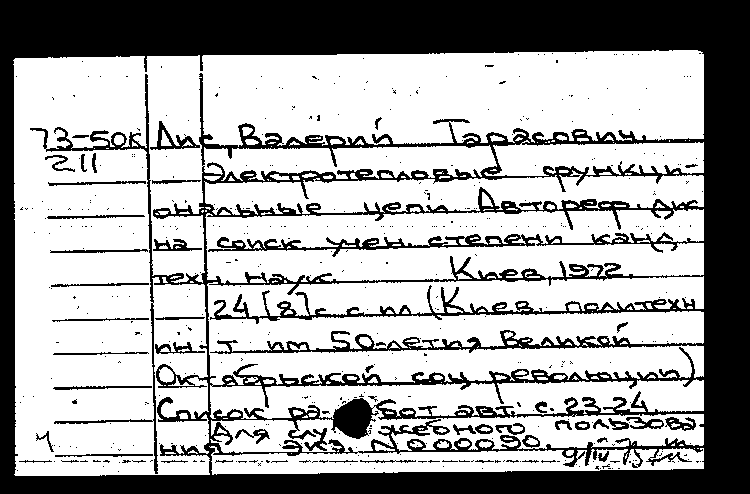 73-50к Лис, Валерий Тарасович.
211
Электротепловые функци-
ональные цепи Автореф. дис
на соиск учен. степени канд.
техн. наук. Киев, 1972.
24, [8] с с ил (Киев. политехн
ин-т им 50-летия Великой
Октябрьской соц революции)
Список работ авт.: с. 23-24.
Для служебного пользова-
ния. Экз. N 000090.